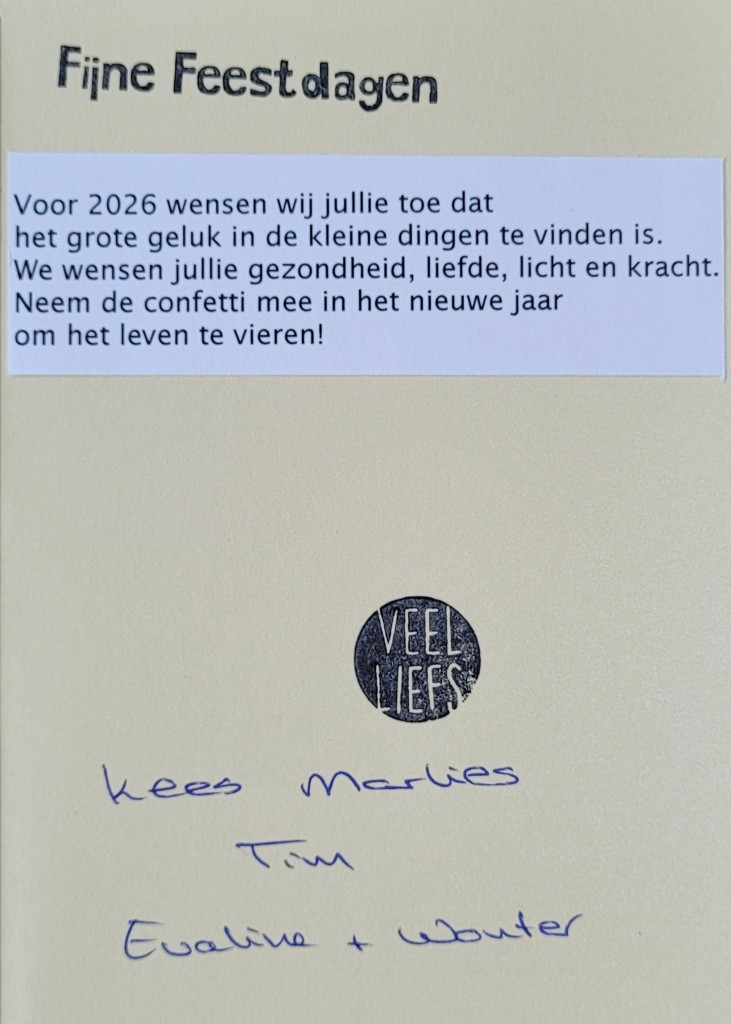 Fijne Feestdagen
Voor 2026 wensen wij jullie toe dat
het grote geluk in de kleine dingen te vinden is.
We wensen jullie gezondheid, liefde, licht en kracht.
Neem de confetti mee in het nieuwe jaar
om het leven te vieren!
VEEL
LIEFS
Kees Marlies
Tim
Evaline + Wouter